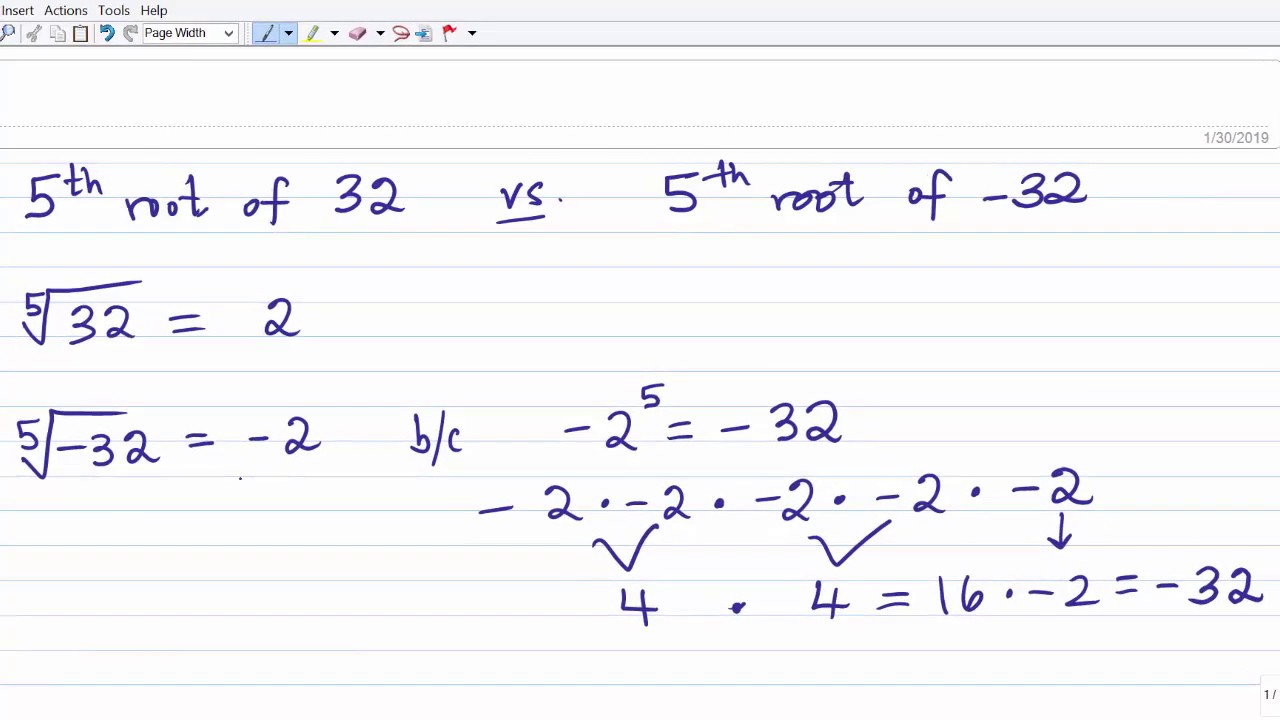 Insert Actions Tools Help
Page Width
1/30/2019
5th root of 32 vs. 5th root of -32
⁵√32 = 2
⁵√-32 = -2 b/c -2⁵ = -32
-2 · -2 · -2 · -2 · -2
4 · 4 = 16 · -2 = -32
1 /